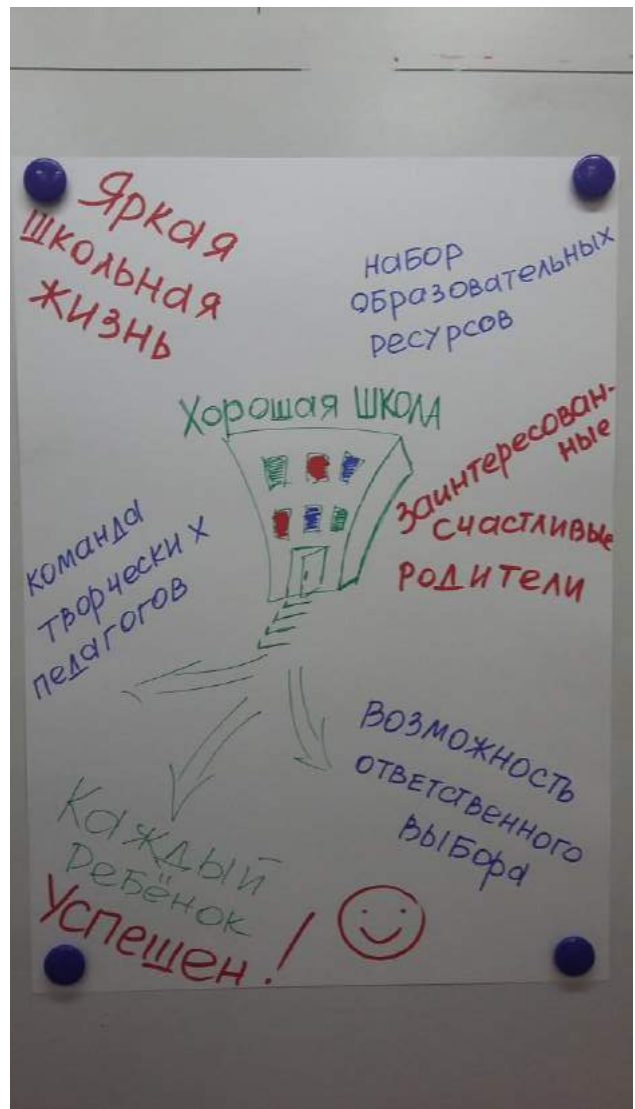 Яркая
школьная
жизнь
набор
образовательных
ресурсов
Хорошая школа
заинтересован-
ные
счастливые
родители
команда
творческих
педагогов
возможность
ответственного
выбора
Каждый
ребёнок
Успешен!